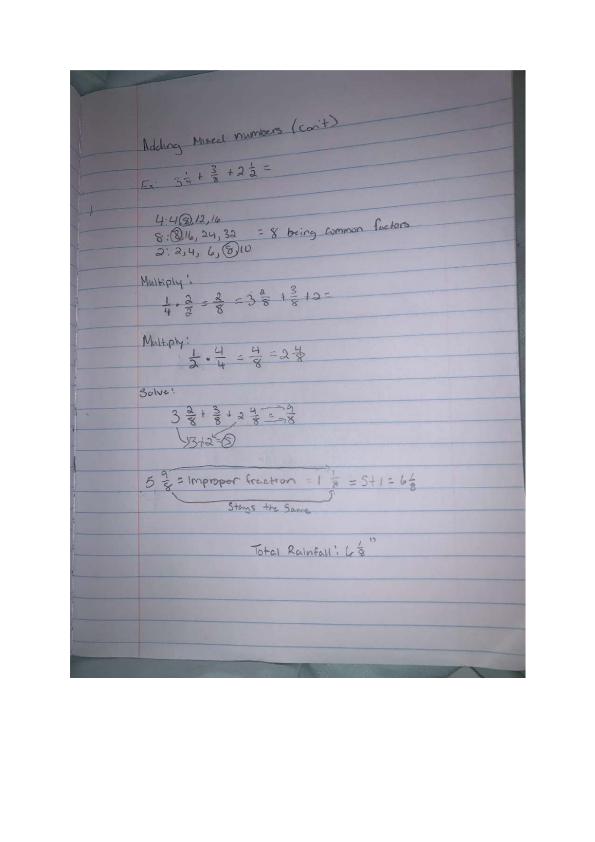 Adding Mixed numbers (Con't)
Ex: 3 1/4 + 3/8 + 2 1/2 =
4: 4, 8, 12, 16
8: 8, 16, 24, 32 = 8 being common factors
2: 2, 4, 6, 8, 10
Multiply:
1/4 • 2/2 = 2/8 = 3 2/8 + 3/8 + 2 =
Multiply:
1/2 • 4/4 = 4/8 = 2 4/8
Solve:
3 2/8 + 3/8 + 2 4/8 = 9/8
3+2=5
5 9/8 = Improper fraction = 1 1/8 = 5+1 = 6 1/8
Stays the Same
Total Rainfall: 6 1/8"